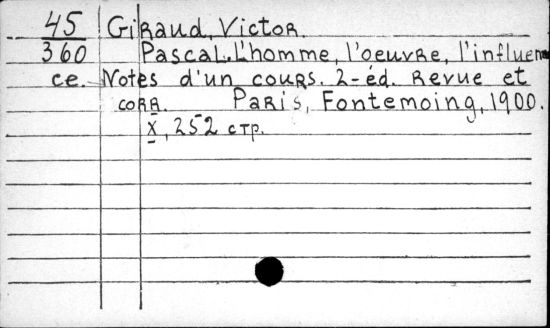 45 Giraud, Victor.
360 Pascal. L'homme, l'oeuvre, l'influen
ce. Notes d'un cours. 2-éd. Revue et
corr. Paris, Fontemoing, 1900.
X, 252 стр.